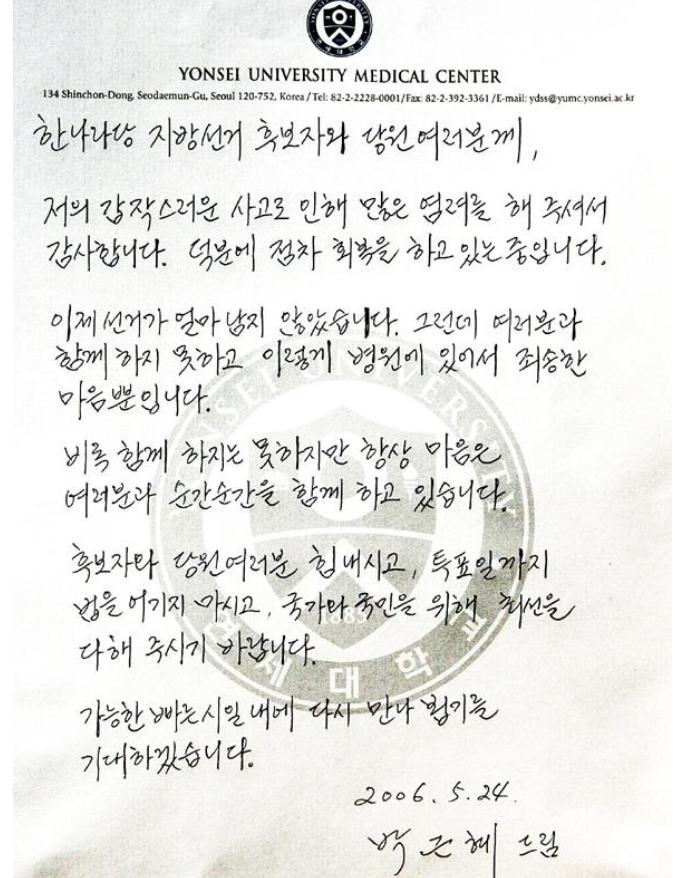 YONSEI UNIVERSITY
YONSEI UNIVERSITY MEDICAL CENTER
134 Shinchon-Dong, Seodaemun-Gu, Seoul 120-752, Korea/Tel: 82-2-2228-0001/Fax: 82-2-392-3361/E-mail: ydss@yumc.yonsei.ac.kr
한나라당 지방선거 후보자와 당원 여러분께,
저의 갑작스러운 사고로 인해 많은 염려를 해 주셔서
감사합니다. 덕분에 점차 회복을 하고 있는 중입니다.
이제 선거가 얼마 남지 않았습니다. 그런데 여러분과
함께 하지 못하고 이렇게 병원에 있어서 죄송한
마음뿐입니다.
비록 함께 하지는 못하지만 항상 마음은
여러분과 순간순간을 함께 하고 있습니다.
후보자와 당원여러분 힘 내시고, 투표일까지
법을 어기지 마시고, 국가와 국민을 위해 최선을
다해 주시기 바랍니다.
가능한 빠른 시일 내에 다시 만나 뵙기를
기대하겠습니다.
2006. 5. 24.
박근혜 드림
YONSEI UNIVERSITY
1885
연세대학교